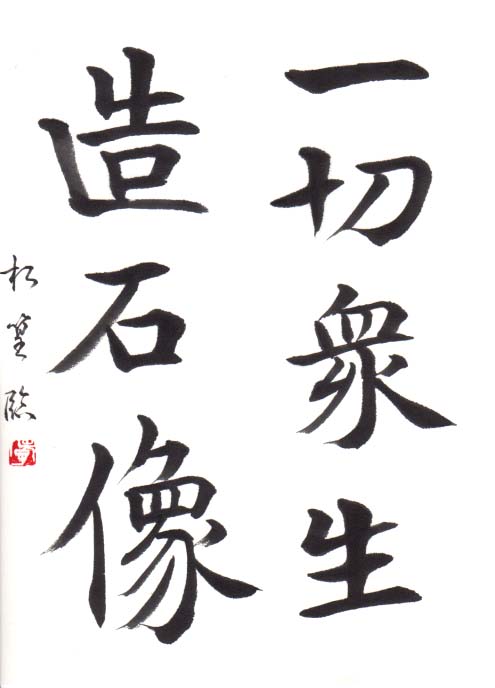 一切衆生
造石像
松篁臨